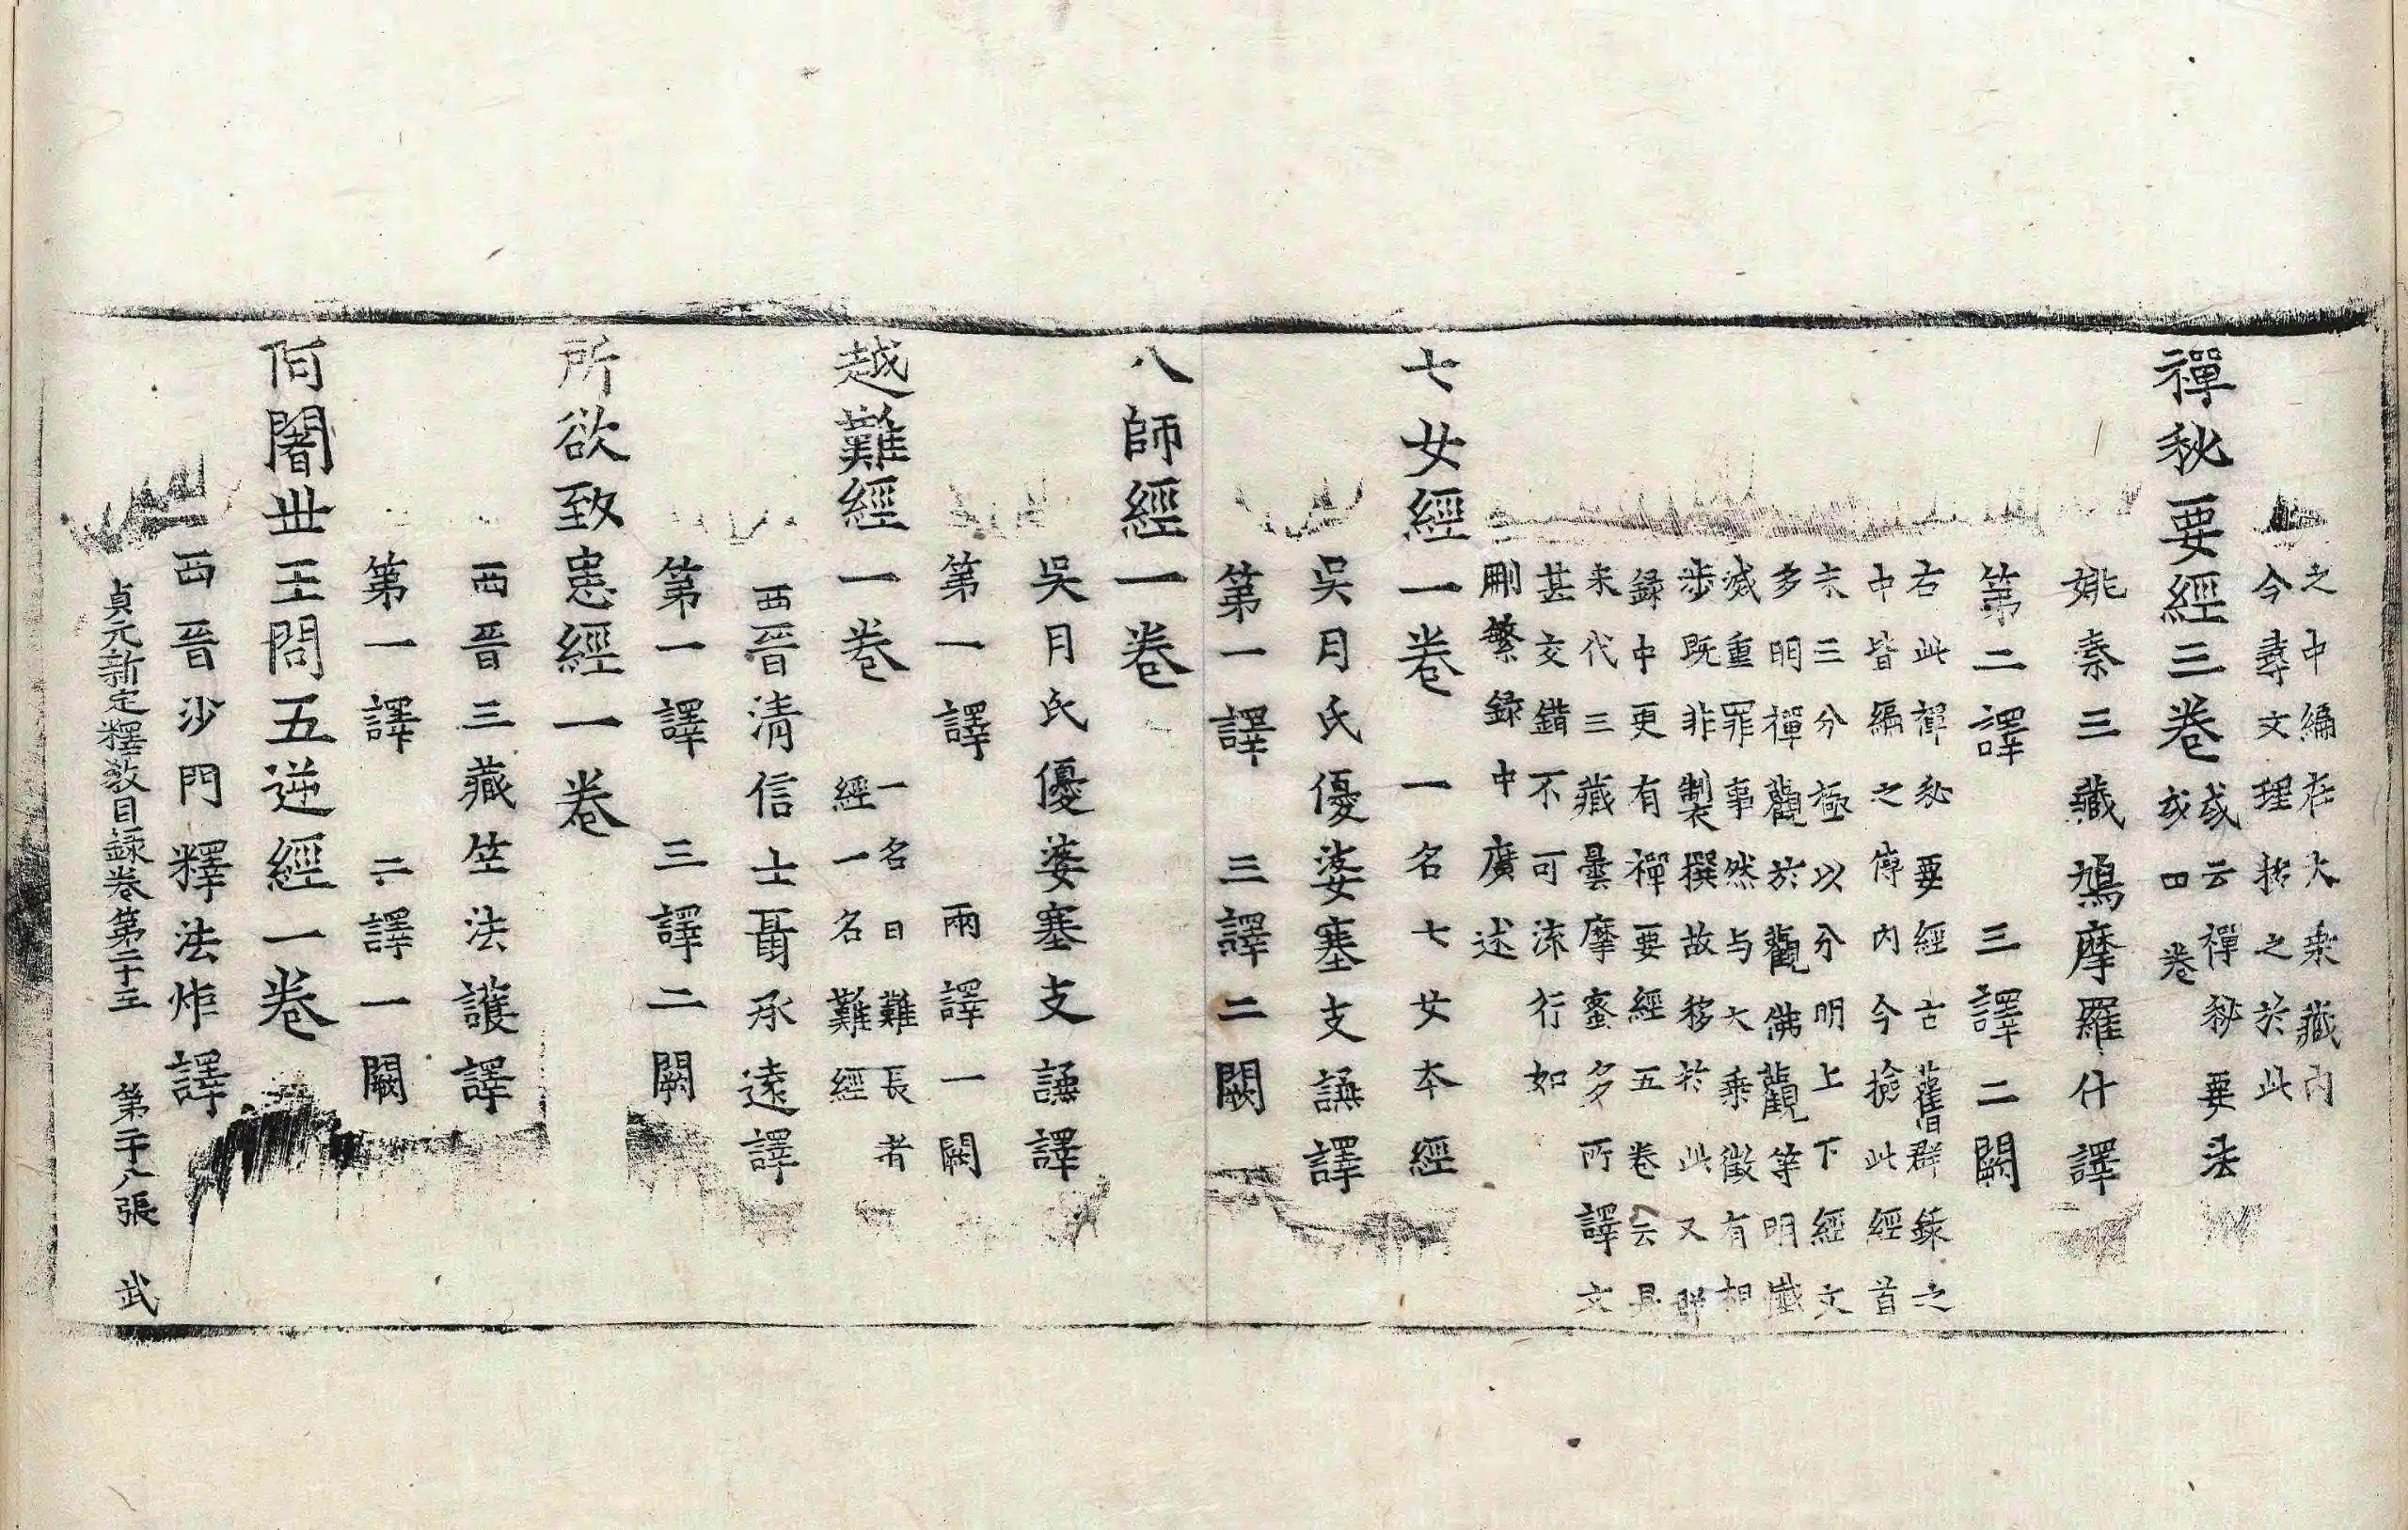 之中編在大乘藏內
今尋文理括之於此
禪秘要經三卷
或云禪秘要法
或四卷
姚秦三藏鳩摩羅什譯
第二譯 三譯二闕
右此禪秘要經古舊群錄之
中皆編之傳內今撿此經首
末三分極以分明上下經文
多明禪觀於觀佛觀等明懺
滅重罪事然与大乘微有相
涉既非製撰故移於此又群
錄中更有禪要經五卷云是
宋代三藏曇摩蜜多所譯文
甚交錯不可流行如
刪繁錄中廣述
七女經一卷 一名七女本經
吳月氏優婆塞支謙譯
第一譯 三譯二闕
八師經一卷
吳月氏優婆塞支謙譯
第一譯 兩譯一闕
越難經一卷
一名曰難長者
經一名難經
西晉清信士聶承遠譯
第一譯 三譯二闕
所欲致患經一卷
西晉三藏竺法護譯
第一譯 二譯一闕
阿闍世王問五逆經一卷
西晉沙門釋法炬譯
貞元新定釋教目錄卷第二十三 第二十八張 武